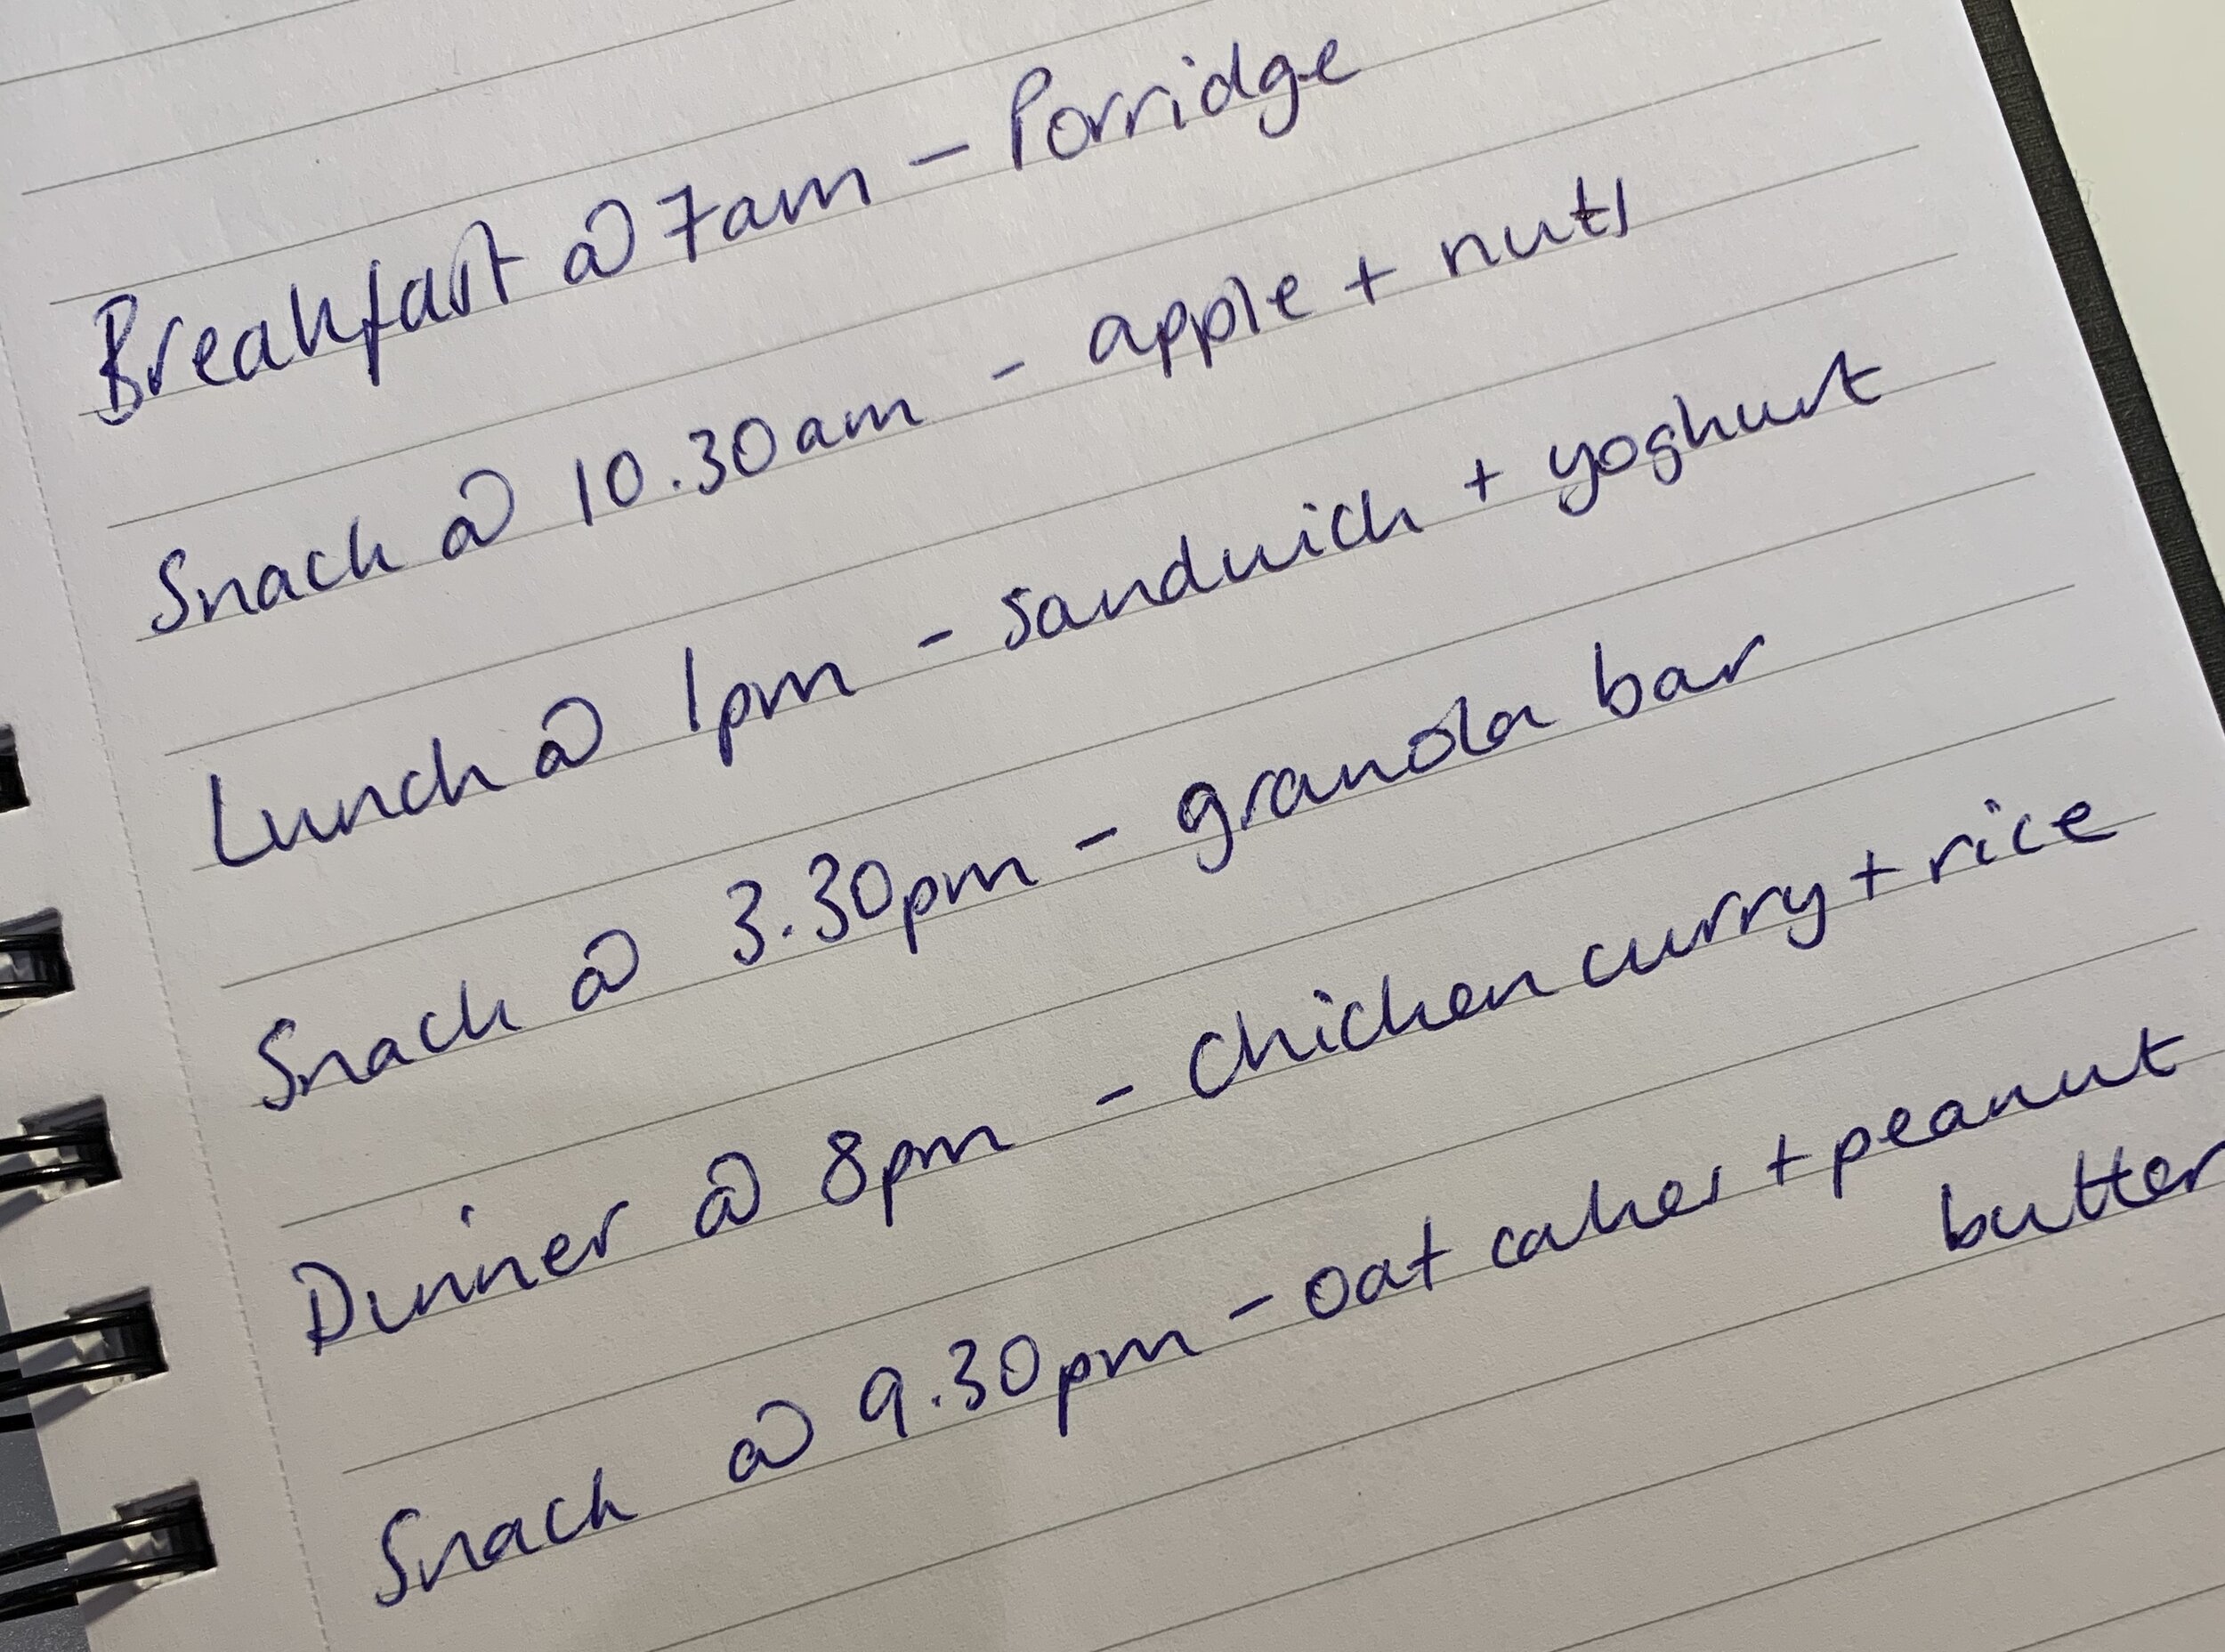 Breakfast @ 7am - Porridge
Snack @ 10.30am - apple + nuts
Lunch @ 1pm - sandwich + yoghurt
Snack @ 3.30pm - granola bar
Dinner @ 8pm - Chicken curry + rice
Snack @ 9.30pm - oat cakes + peanut
butter